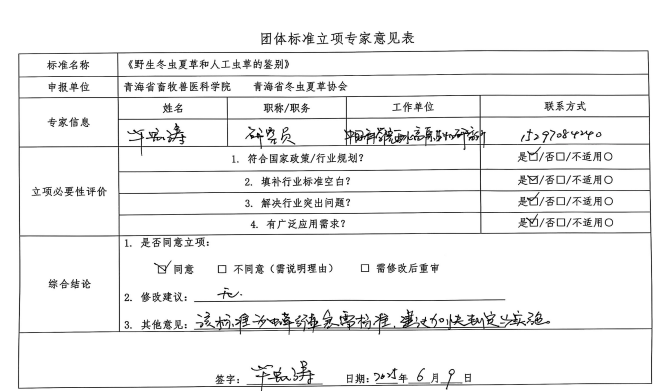 团体标准立项专家意见表
标准名称 《野生冬虫夏草和人工虫草的鉴别》
申报单位 青海省畜牧兽医科学院 青海省冬虫夏草协会
专家信息 姓名 职称/职务 工作单位 联系方式
研究员 中国科学院西北高原生物研究所 15297084240
立项必要性评价
1. 符合国家政策/行业规划? 是☑/否□/不适用○
2. 填补行业标准空白? 是☑/否□/不适用○
3. 解决行业突出问题? 是☑/否□/不适用○
4. 有广泛应用需求? 是☑/否□/不适用○
综合结论
1. 是否同意立项:
☑ 同意 □ 不同意(需说明理由) □ 需修改后重审
2. 修改建议: 无.
3. 其他意见: 该标准为 标准,建议加快制定与实施。
签字: 日期: 2025年 6 月 9 日